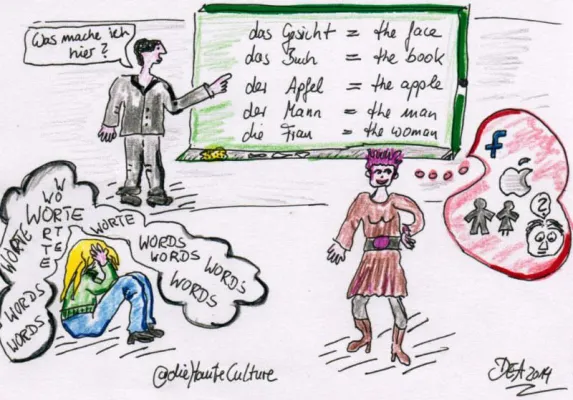 Was mache ich
hier?
das Gesicht = the face
das Buch = the book
der Apfel = the apple
der Mann = the man
die Frau = the woman
f
?
WÖRTE
WÖRTE
WÖRTE
WÖRTE
WORDS
WORDS
WORDS
WORDS
WORDS
WORDS
@dieHauteCulture
DEA 2014